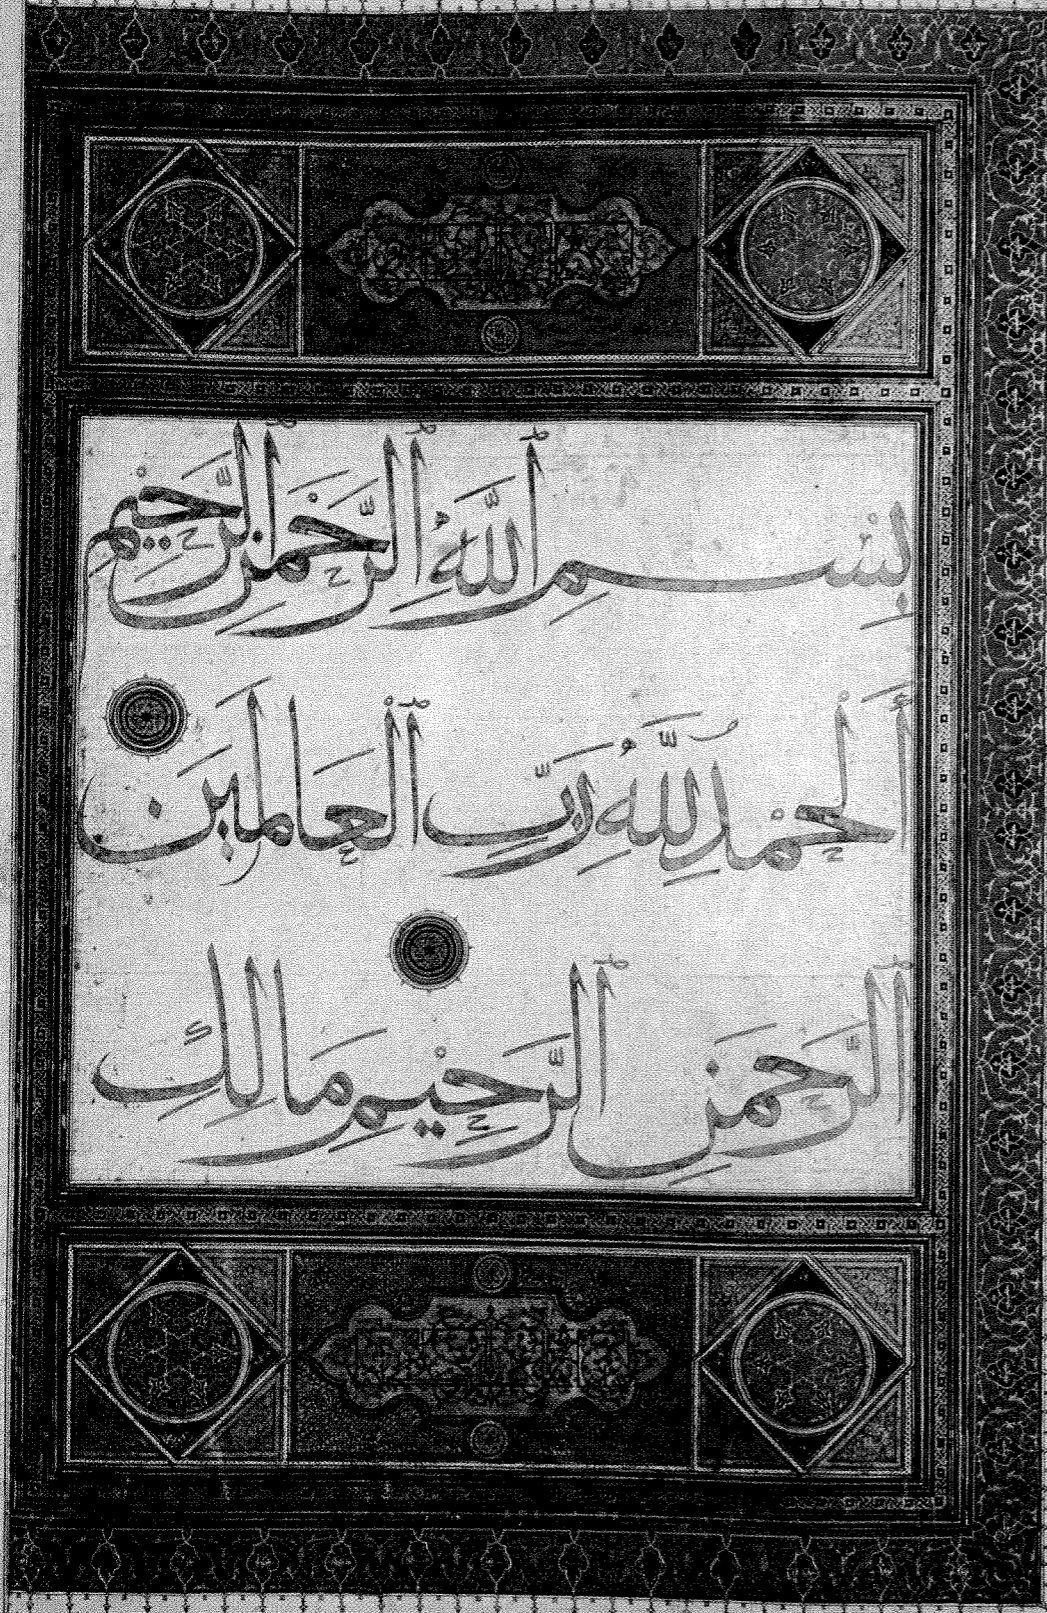 بِسْمِ ٱللَّهِ ٱلرَّحْمَٰنِ ٱلرَّحِيْمِ
أَلْحَمْدُ لِلَّهِ رَبِّ ٱلْعَالَمِينَ
ٱلرَّحْمَٰنِ ٱلرَّحِيْمِ مَالِكِ